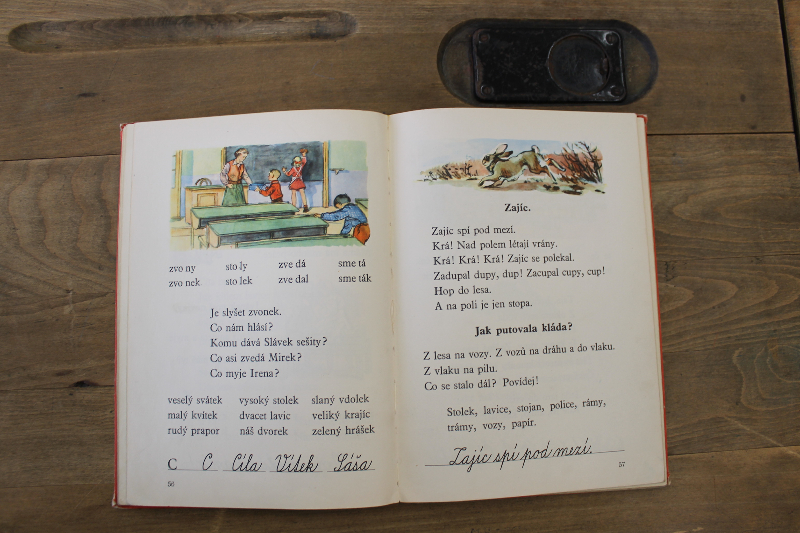 zvo ny sto ly zve dá sme tá
zvo nek sto lek zve dal sme ták
Je slyšet zvonek.
Co nám hlásí?
Komu dává Slávek sešity?
Co asi zvedá Mirek?
Co myje Irena?
veselý svátek vysoký stolek slaný vdolek
malý kvítek dvacet lavic veliký krajíc
rudý prapor náš dvorek zelený hrášek
C C Cíla Vítek Sáša
56
Zajíc.
Zajíc spí pod mezí.
Krá! Nad polem létají vrány.
Krá! Krá! Krá! Zajíc se polekal.
Zadupal dupy, dup! Zacupal cupy, cup!
Hop do lesa.
A na poli je jen stopa.
Jak putovala kláda?
Z lesa na vozy. Z vozů na dráhu a do vlaku.
Z vlaku na pilu.
Co se stalo dál? Povídej!
Stolek, lavice, stojan, police, rámy,
trámy, vozy, papír.
Zajíc spí pod mezí.
57